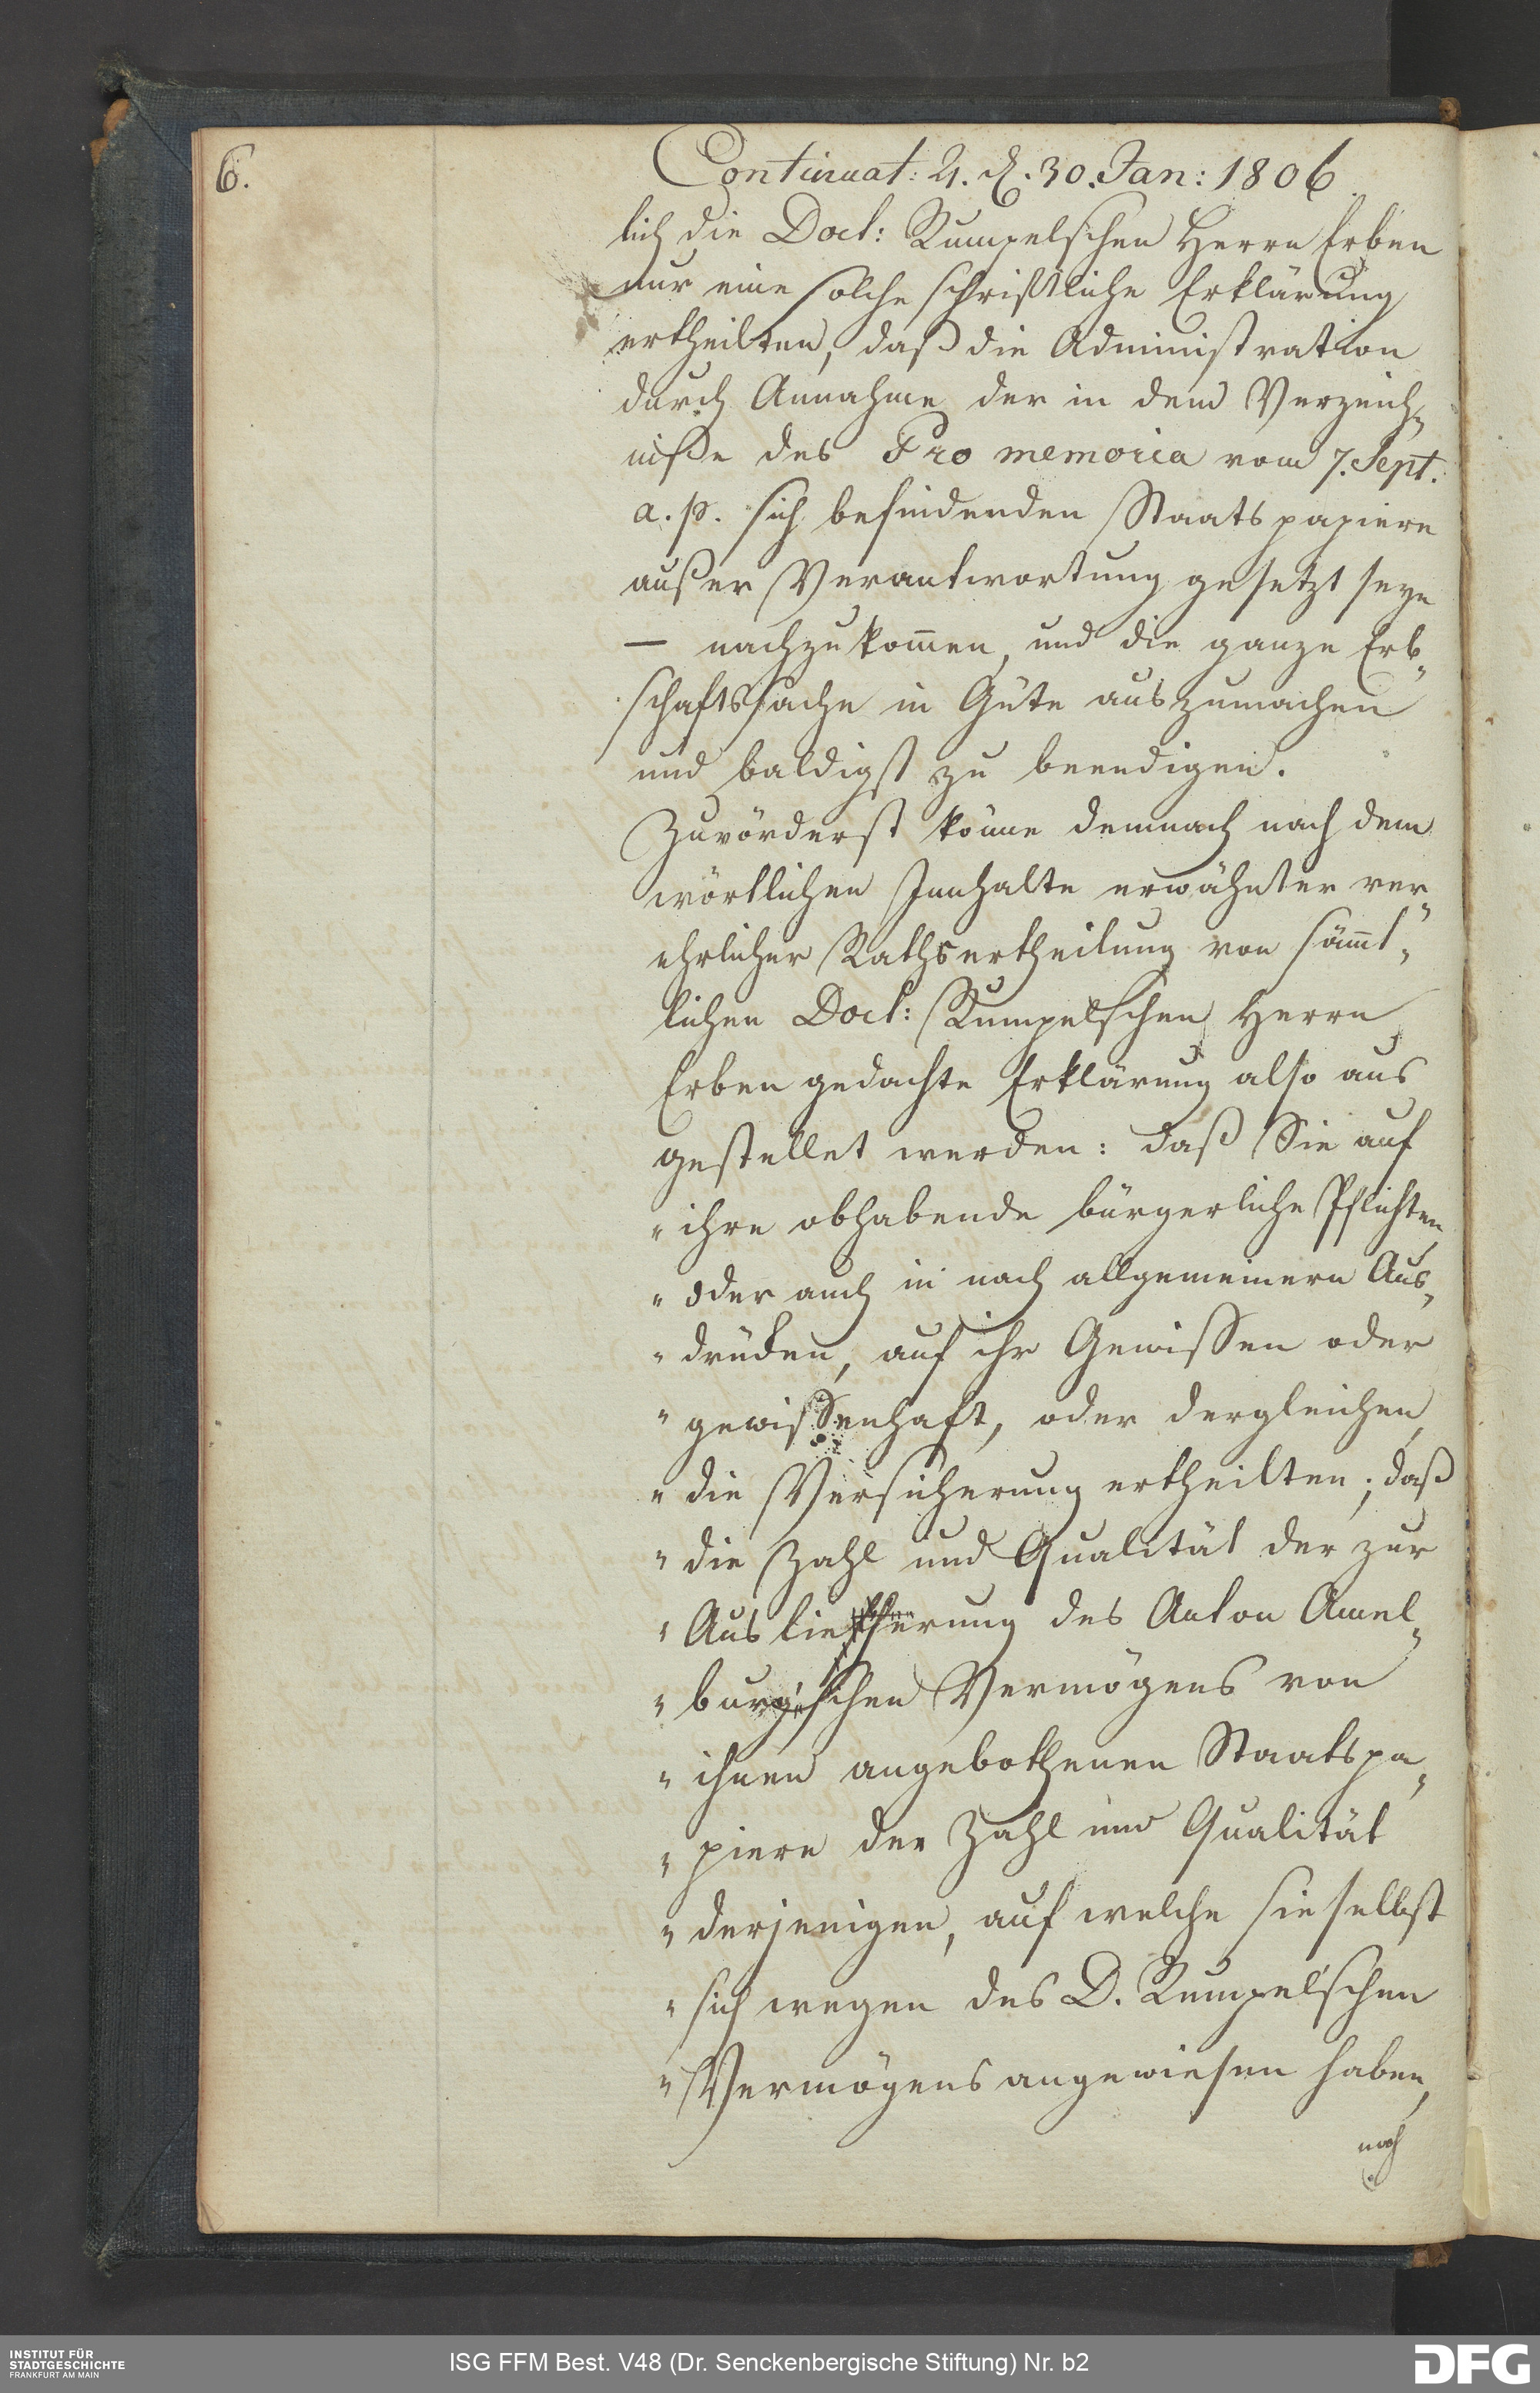 6.
Continuat: 4. d. 30. Jan: 1806
lich die Doct: Rumpelschen Herrn Erben
nur eine solche schriftliche Erklärung
ertheilten, daß die Administration
durch Annahme der in dem Verzeich„
niße des Pro memoria vom 7. Sept.
a. p. sich befindenden Staatspapiere
außer Verantwortung gesetzt seye
— nachzukom̄en, und die ganze Erb„
schaftssache in Güte auszumachen
und baldigst zu beendigen.
Zuvörderst könne demnach nach dem
wörtlichen Innhalte erwähnter ver„
ehrlicher Rathsertheilung von säm̄t„
lichen Doct: Rumpelschen Herrn
Erben gedachte Erklärung also aus
gestellet werden: daß Sie auf
„ ihre obhabende bürgerliche Pflichten,
„ oder auch in noch allgemeinern Aus„
„ drücken, auf ihr Gewissen oder
„ gewissenhaft, oder dergleichen,
„ die Versicherung ertheilten; daß
„ die Zahl und Qualität der zur
„ Auslieferung des Anton Amel„
„ burg'schen Vermögens von
„ ihnen angebothenen Staatspa„
„ piere der Zahl und Qualität
„ derjenigen, auf welche sie selbst
„ sich wegen des D. Rumpel'schen
„ Vermögens angewiesen haben,
noch
INSTITUT FÜR
STADTGESCHICHTE
FRANKFURT AM MAIN
ISG FFM Best. V48 (Dr. Senckenbergische Stiftung) Nr. b2
DFG